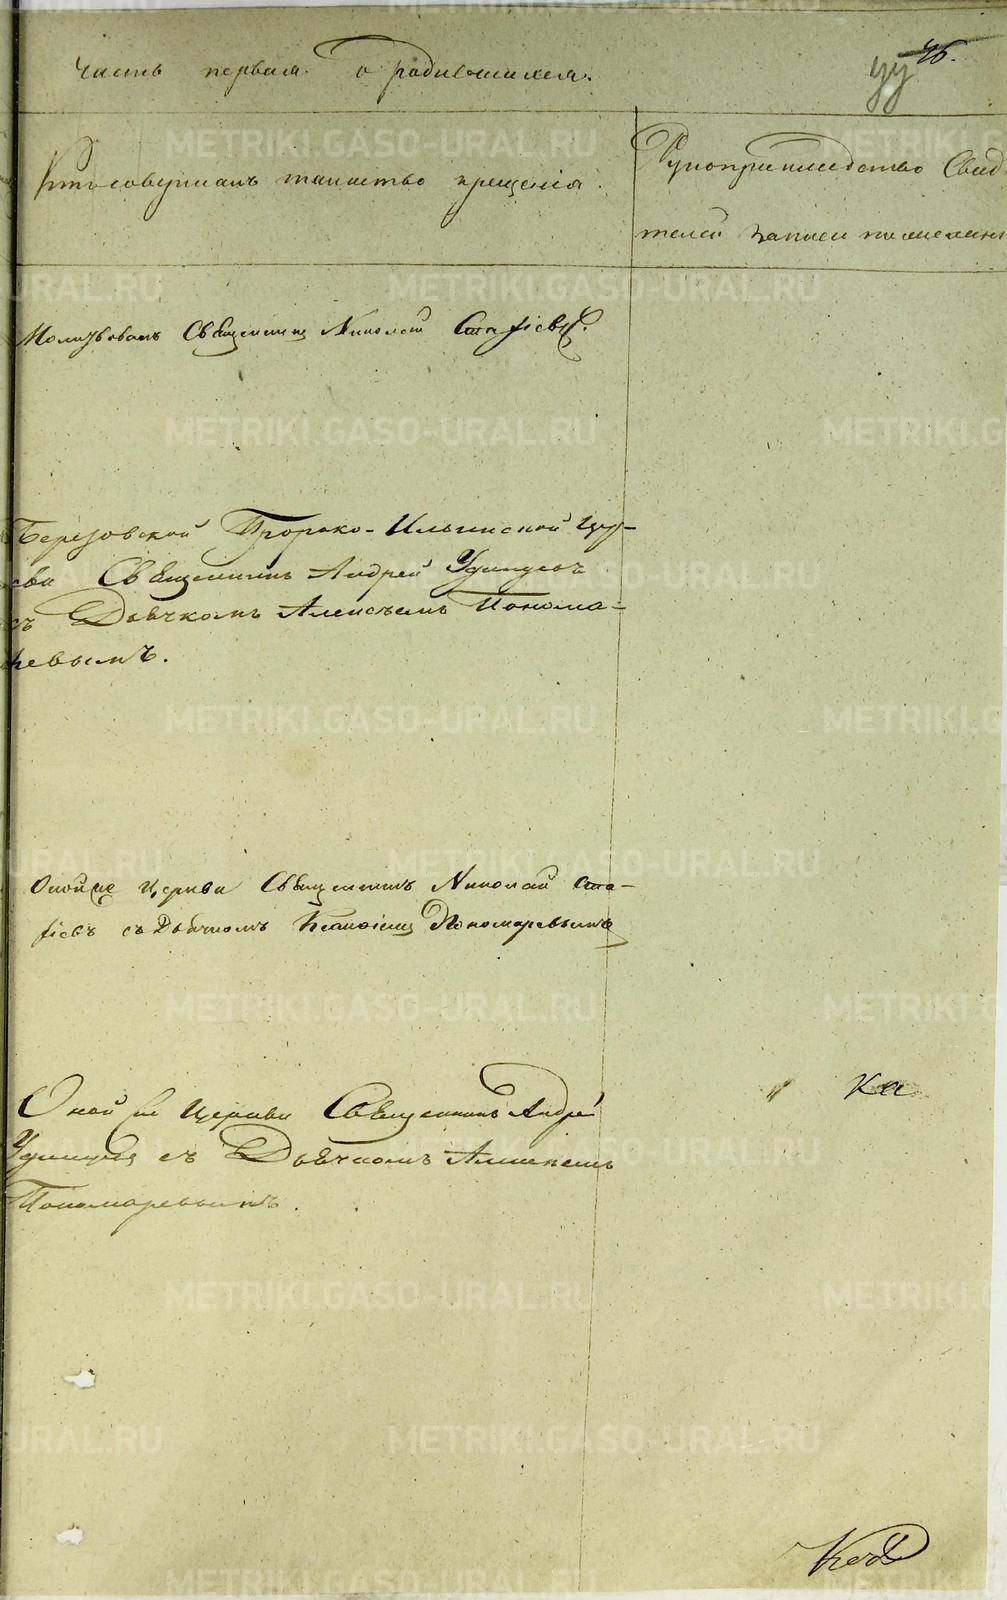 часть первая о родившихся.
46.
Кто совершалъ таинство крещенія.
Рукоприкладство Свид
телей записи по желанi
Молитвовалъ Священникъ Николай
Березовской Пророко-Ильинской Цер-
кви Священникъ Андрей Удинцовъ
съ Дьячкомъ Алексѣемъ Понома-
ревымъ.
Оной же Церкви Священникъ Николай
съ Дьячкомъ Пономаревымъ
Оной же Церкви Священникъ Андрей
Удинцовъ съ Дьячкомъ Алексѣемъ
Пономаревымъ.
METRIKI.GASO-URAL.RU